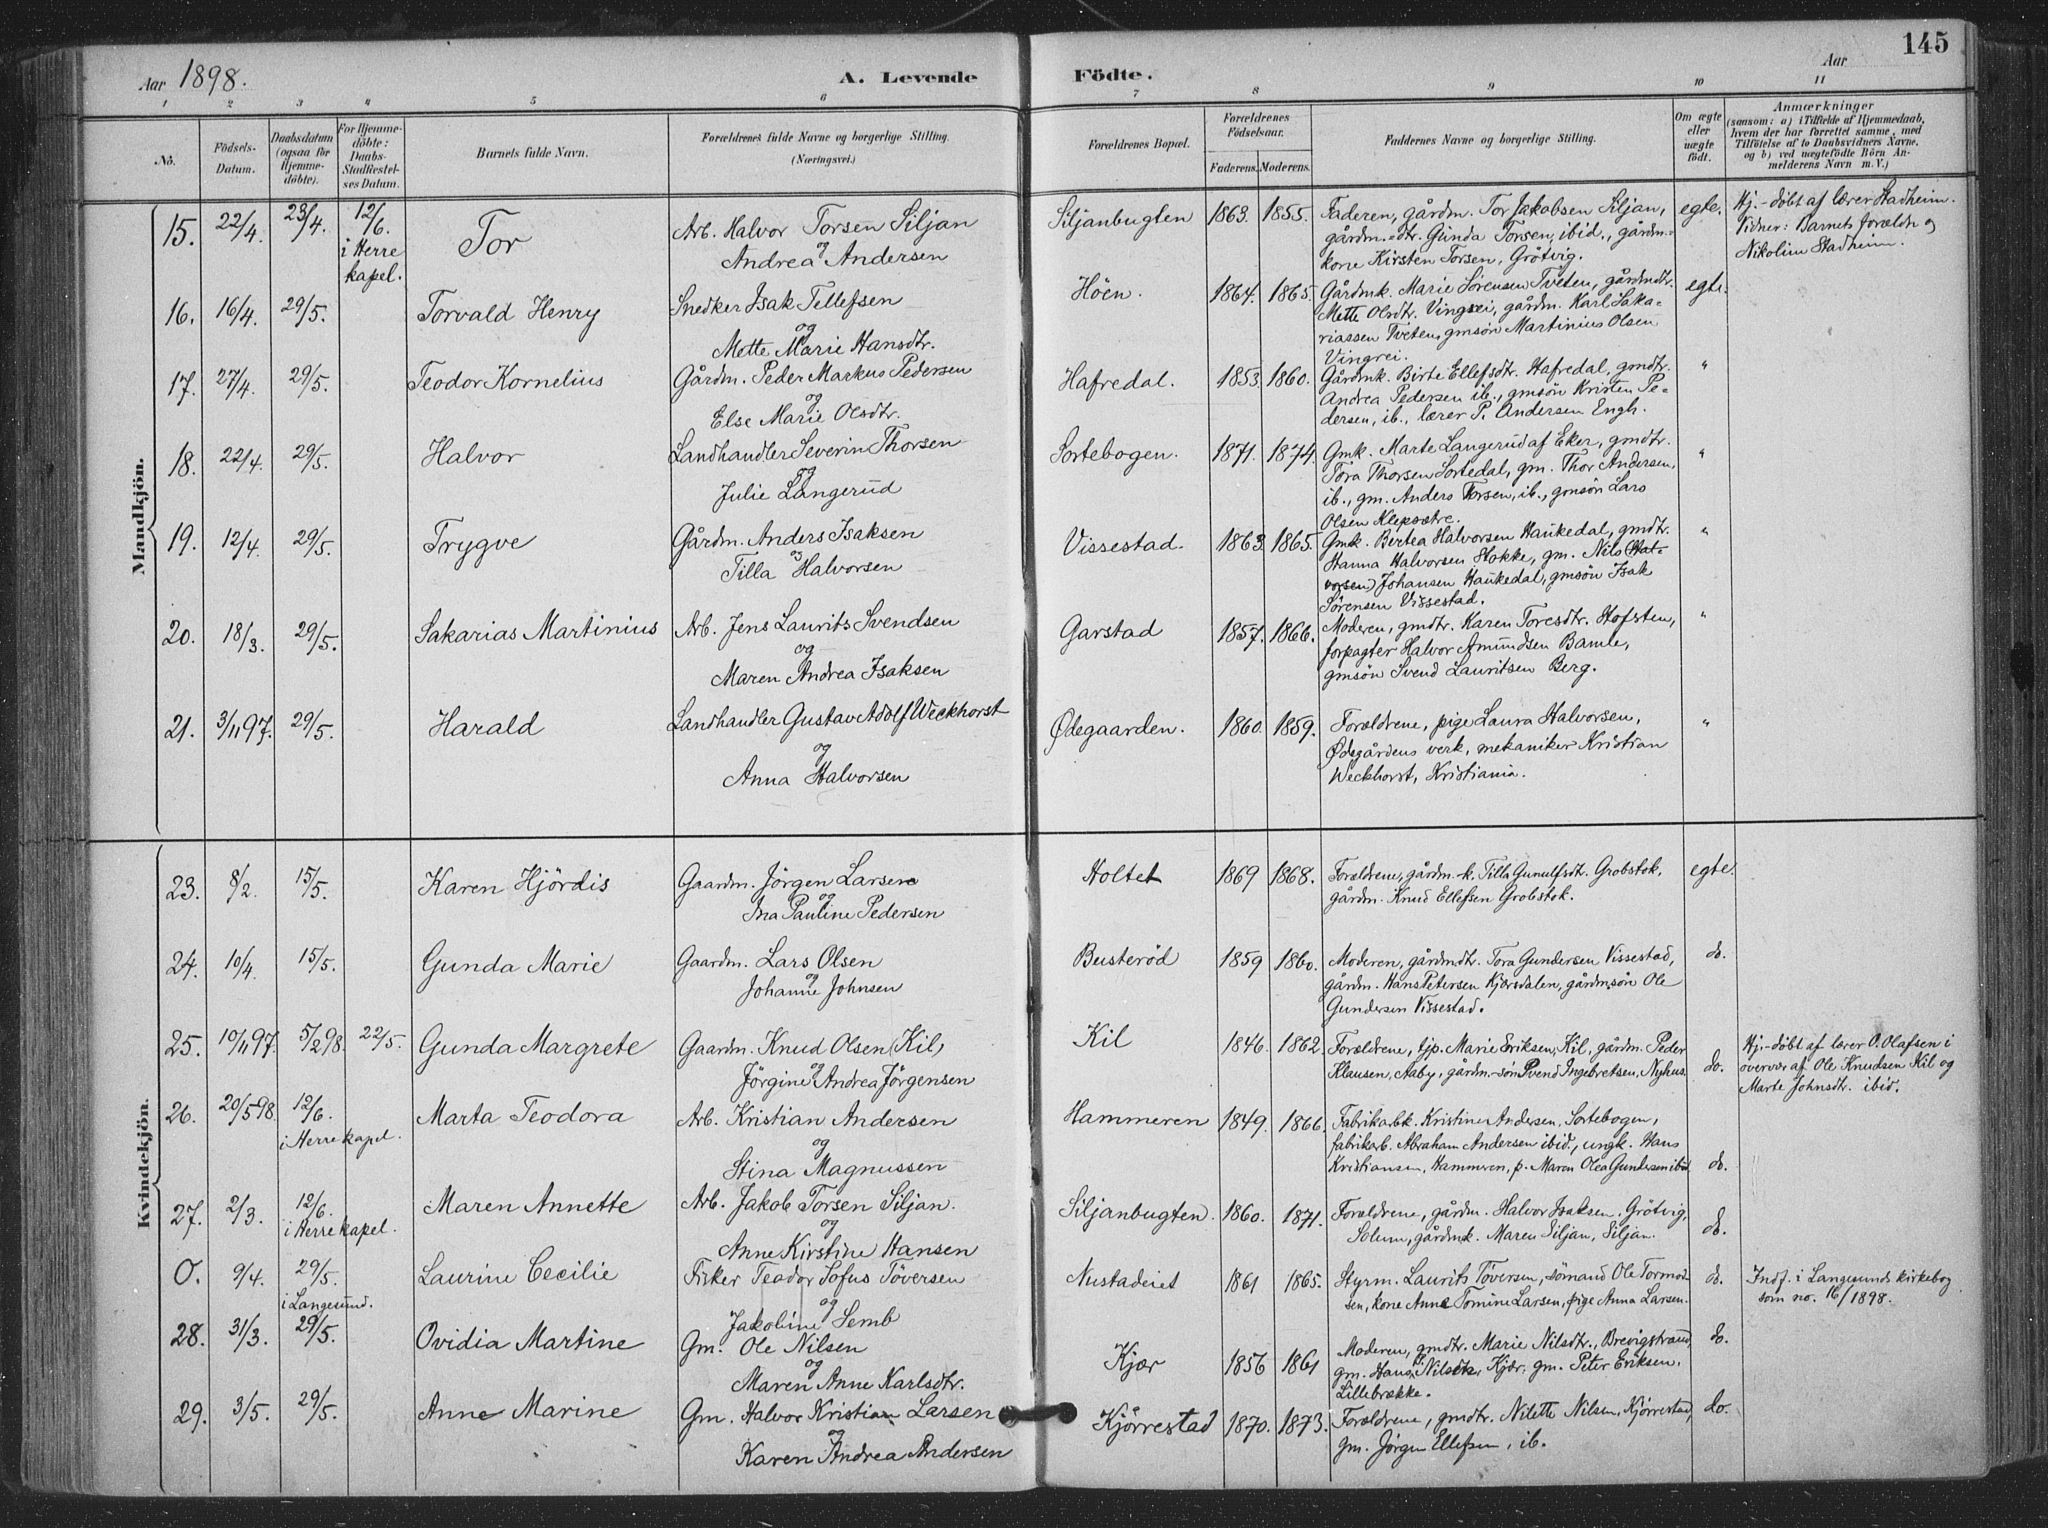 Aar 1898.
A. Levende
Födte.
Aar
145
1 2 3 4 5 6 7 8 9 10 11
No.
Födsels-Datum.
Daabsdatum (ogsaa for Hjemme-döbte).
For Hjemme-döbte: Daabs-Stadfæstel-ses Datum.
Barnets fulde Navn.
Forældrenes fulde Navne og borgerlige Stilling. (Næringsvei.)
Forældrenes Bopæl.
Forældrenes Födselsaar.
Faderens. Moderens.
Faddernes Navne og borgerlige Stilling.
Om ægte eller uægte födt.
Anmærkninger
(saasom: a) i Tilfælde af Hjemmedaab, hvem der har forrettet samme, med Tilföielse af to Daabsvidners Navne, og b) ved uegtefödte Börn An-melderens Navn m. V.)
Mandkjön.
15. 22/4. 23/4. 12/6. i Herre kapel. Tor
Arb. Halvor Torsen Siljan
og
Andrea Andersen
Siljanbugten 1863. 1855.
Faderen, gårdm. Tor Jakobsen Siljan,
gårdm.-dtr. Gunda Torsen, ibid., gårdm.-
kone Kirsten Torsen, Grötvig.
egte.
Hj.-döbt af lærer Stadheim.
Vidner: Barnets forældre og
Nikoline Stadheim.
16. 16/4. 29/5. Torvald Henry
Snedker Isak Tellefsen
og
Mette Marie Hansdtr.
Höen. 1864. 1865.
Gårdmk. Marie Sörensen Tveten, gårdmdtr.
Mette Olsdtr. Vingrei, gårdm. Karl Saka-
riassen Tveten, gmsön Martinius Olsen
Vingrei.
egte.
17. 27/4. 29/5. Teodor Kornelius
Gårdm. Peder Markus Pedersen
og
Else Marie Olsdtr.
Hafredal. 1853. 1860.
Gårdmk. Birte Ellefsdtr. Hafredal, gmdtr.
Andrea Pedersen ib., gmsön Kristen Pe-
dersen, ib., lærer P. Andersen Engh.
"
18. 22/4. 29/5. Halvor
Landhandler Severin Thorsen
og
Julie Langerud
Sortebogen. 1871. 1874.
Gmk. Marte Langerud af Eker, gmdtr.
Tora Thorsen Sortedal, gm. Thor Andersen,
ib., gm. Anders Torsen, ib., gmsön Lars
Olsen Klepsætre.
"
19. 12/4. 29/5. Trygve
Gårdm. Anders Isaksen
og
Tilla Halvorsen
Vissestad. 1863. 1865.
Gmk. Bertea Halvorsen Haukedal, gmdtr.
Hanna Halvorsen Stokke, gm. Nils (Hal-
vorsen) Johansen Haukedal, gmsön Isak
Sörensen Vissestad.
"
20. 18/3. 29/5. Sakarias Martinius
Arb. Jens Laurits Svendsen
og
Maren Andrea Isaksen
Garstad 1857. 1866.
Moderen, gmdtr. Karen Toresdtr. Stofsten,
forpagter Halvor Amundsen Bamle,
gmsön Svend Lauritsen Berg.
"
21. 3/11 97. 29/5. Harald
Landhandler Gustav Adolf Weckhorst
og
Anna Halvorsen
Ødegaarden. 1860. 1859.
Forældrene, pige Laura Halvorsen,
Ødegårdens verk, mekaniker Kristian
Weckhorst, Kristiania.
"
Kvindekjön.
23. 8/2. 15/5. Karen Hjördis
Gaardm. Jörgen Larsen
og
Ina Pauline Pedersen
Holtet 1869 1868.
Forældrene, gårdm.-k. Tilla Gunulfsdt. Grobstok,
gårdm. Knud Ellefsen Grobstok.
egte.
24. 10/4. 15/5. Gunda Marie
Gaardm. Lars Olsen
og
Johanne Johnsen
Busteröd 1859 1860.
Moderen, gårdmdtr. Tora Gundersen Vissestad,
gårdm. Hans Petersen Kjærsdalen, gårdmsön Ole
Gundersen Vissestad.
do.
25. 10/11 97. 5/2 98. 22/5. Gunda Margrete
Gaardm. Knud Olsen (Kil)
og
Jörgine Andrea Jörgensen
Kil 1846. 1862.
Forældrene, tjp. Marie Eriksen, Kil, gårdm. Peder
Klausen, Aaby, gårdm.-sön Svend Ingebretsen, Nyhus.
do.
Hj.-döbt af lærer O. Olafsen i
overvær af Ole Knudsen Kil og
Marte Johnsdt. ibid.
26. 20/5 98. 12/6. i Herre kapel. Marta Teodora
Arb. Kristian Andersen
og
Stina Magnussen
Hammeren 1849. 1866.
Fabrikarbk. Kristine Andersen, Sortebogen,
fabrikarb. Abraham Andersen ibid., ungk. Hans
Kristiansen, Hammeren, p. Maren Olea Gundersen ibid.
do.
27. 2/3. 12/6. i Herre kapel. Maren Annette
Arb. Jakob Torsen Siljan.
og
Anne Kirstine Hansen
Siljanbugten. 1860. 1871.
Forældrene, gårdm. Halvor Isaksen, Grötvig,
Solum, gårdmk. Maren Siljan, Siljan.
do.
0. 9/4. 29/5. i Langesund. Laurine Cecilie
Fisker Teodor Sofus Töversen
og
Jakobine Semb
Nustadeiet 1861 1865.
Styrm. Laurits Töversen, sömand Ole Tormod-
sen, kone Anne Tomine Larsen, pige Anna Larsen.
do.
Indf. i Langesunds kirkebog
som no. 16/1898.
28. 31/3. 29/5. Ovidia Martine
Gm. Ole Nilsen
og
Maren Anne Karlsdtr.
Kjær 1856 1861
Moderen, gmdtr. Marie Nilsdtr., Brevigstrand,
gm. Hans Kjær, gm. Peter Eriksen,
Lillebrække.
do.
29. 3/5. 29/5. Anne Marine
Gm. Halvor Kristian Larsen
og
Karen Andrea Andersen
Kjörrestad 1870. 1873.
Forældrene, gmdtr. Nilette Nilsen, Kjörrestad,
gm. Jörgen Ellefsen, ib.
do.